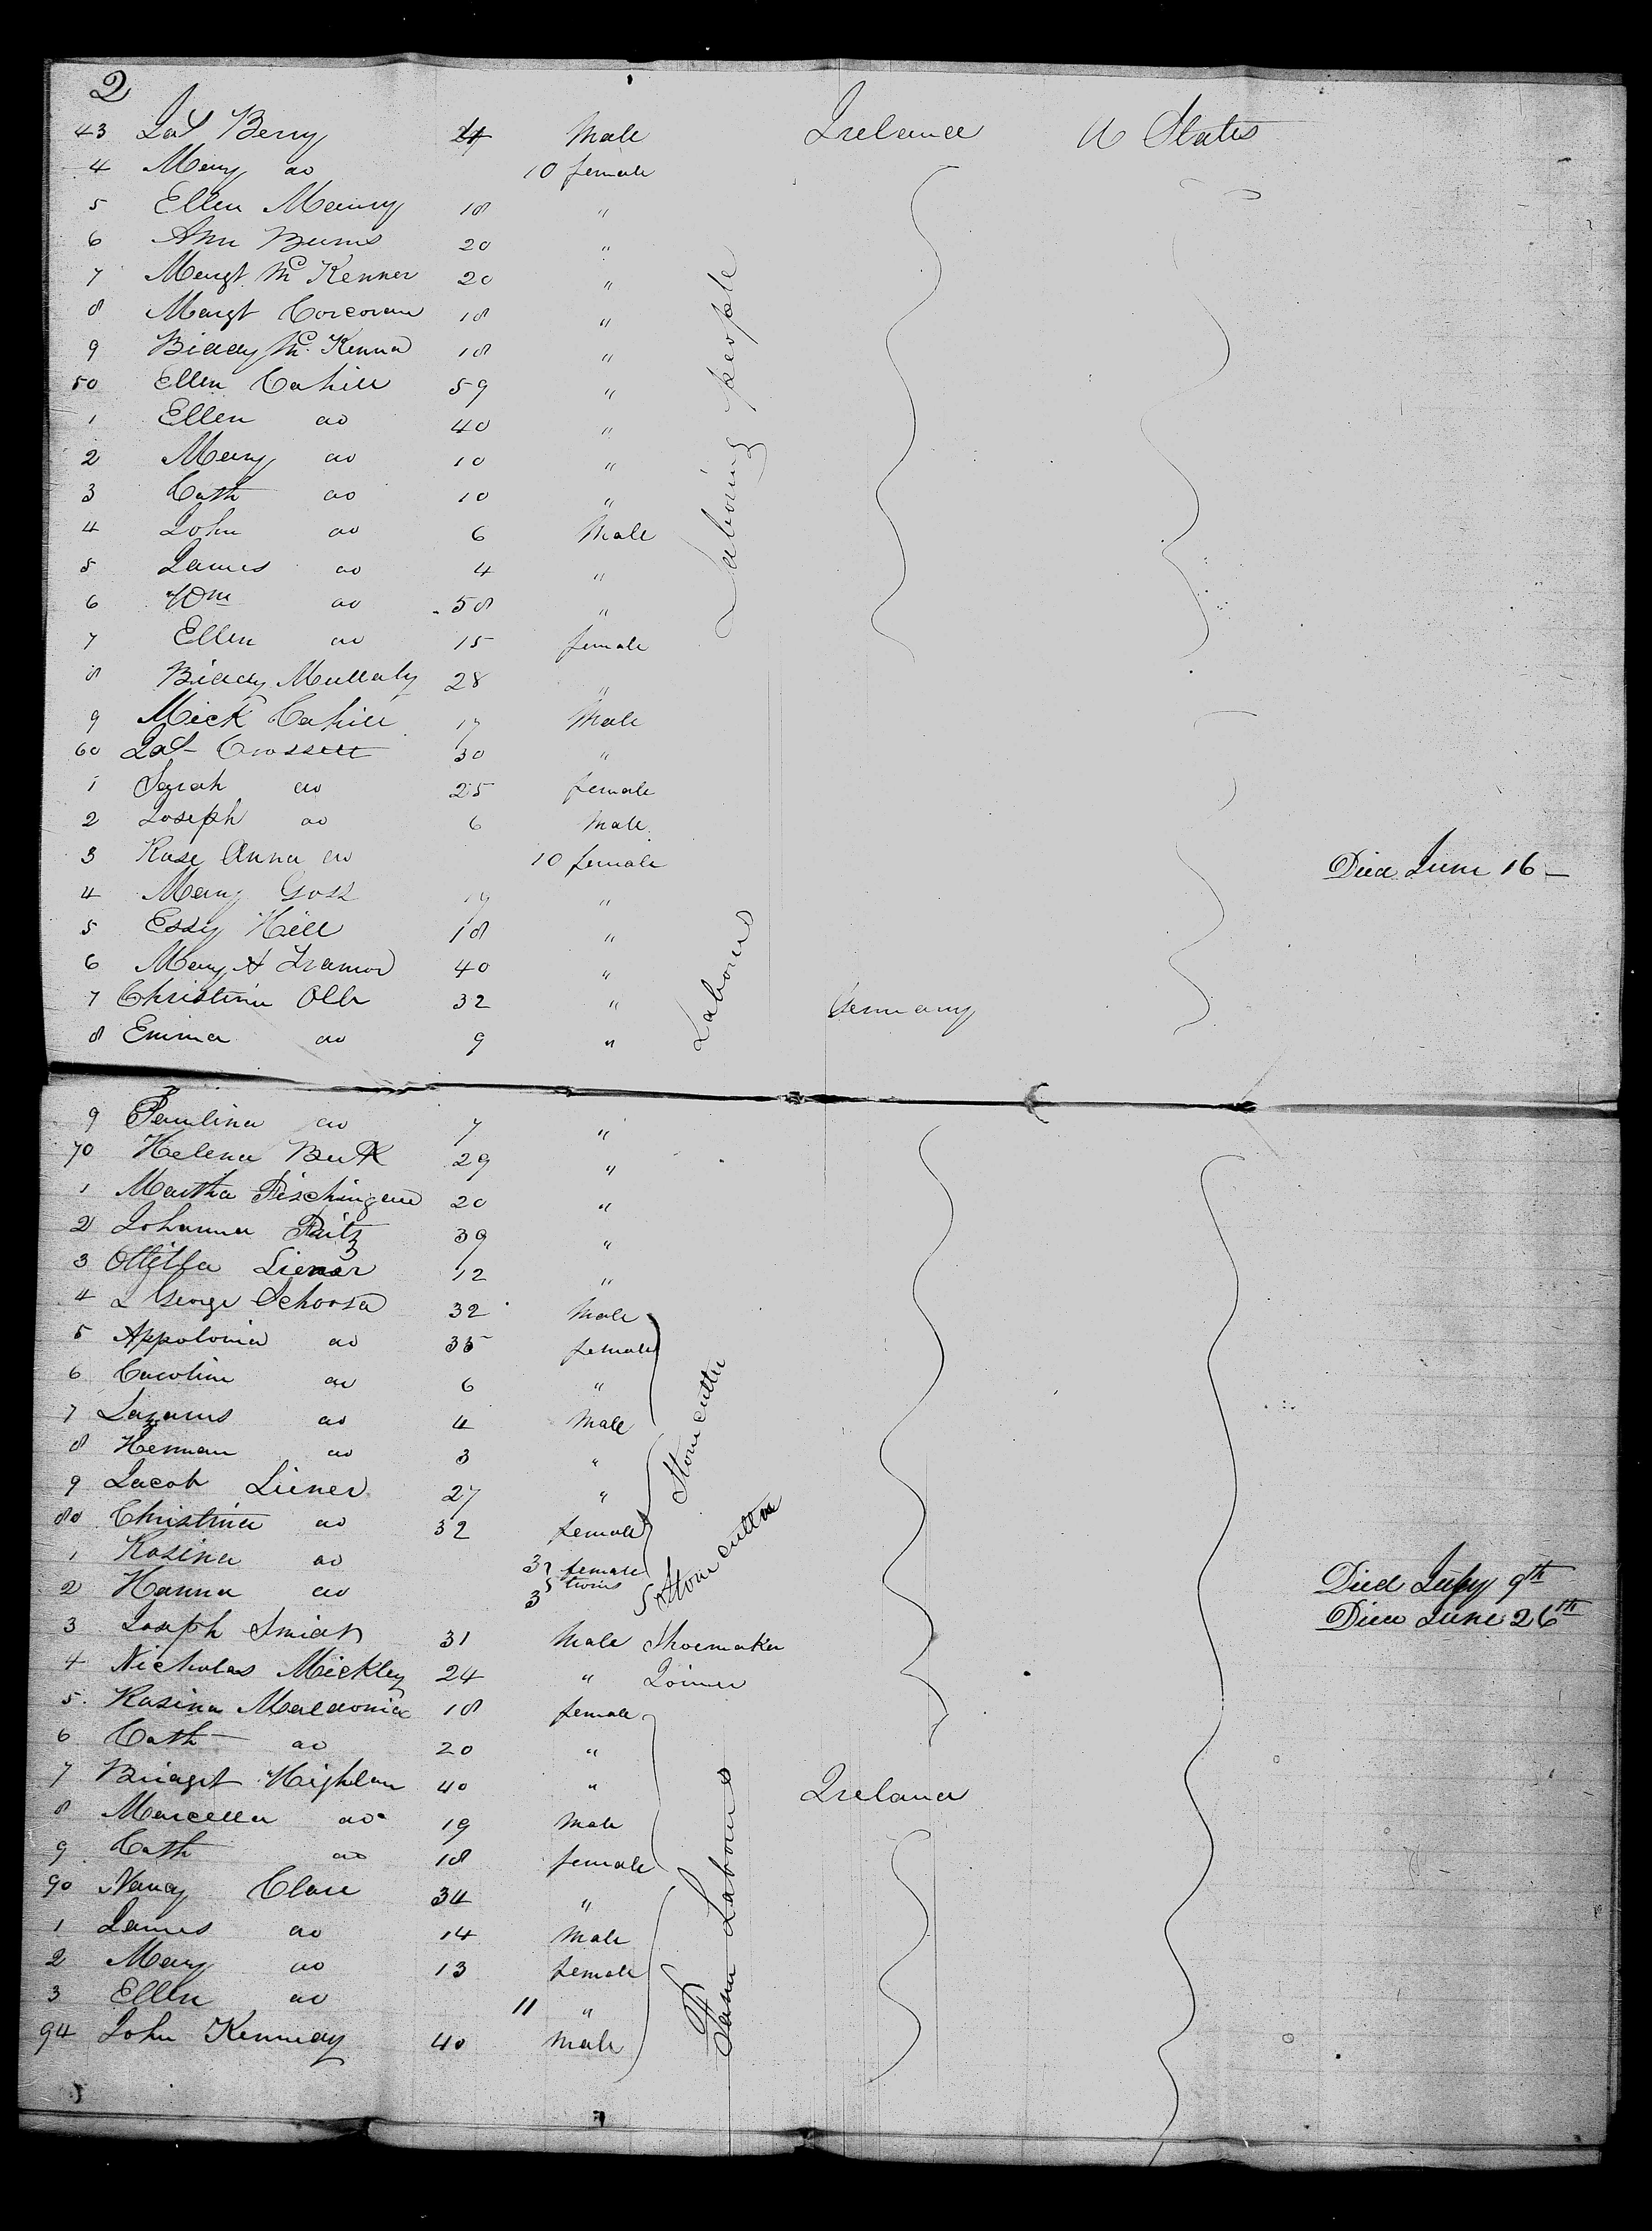 2
43 Pat Berry 24 Male Ireland U States
4 Mary do 10 female
5 Ellen Manny 18 "
6 Ann Burns 20 "
7 Margt McKenner 20 "
8 Margt Corcoran 18 "
9 Biddy McKenna 18 "
50 Ellen Cahill 59 "
1 Ellen do 40 "
2 Mary do 10 "
3 Cath do 10 "
4 John do 6 Male
5 James do 4 "
6 Wm do 50 "
7 Ellen do 15 female
Laboring people
8 Biddy Mullaly 28 "
9 Mick Cahill 17 Male
60 Pat Crossett 30 "
1 Sarah do 25 female
2 Joseph do 6 Male
3 Rose Anna do 10 female Died June 16
4 Mary Goss 19 "
5 Essy Hill 18 "
6 Mary A 40 "
7 Christina 32 " Germany
8 Emma do 9 "
Labours
9 Paulina do 7 "
70 Helena 29 "
1 Martha 20 "
2 Johanna 39 "
3 12 "
4 J George 32 Male
5 Appolonia do 35 female
6 Caroline do 6 "
7 Lazarus do 4 Male
8 Herman do 3 "
Stone cutter
9 Jacob Liener 27 "
80 Christina do 32 female
1 Rosina do 3 female Died July 9th
2 Hanna do 3 twins Died June 26th
Stone cutter
3 Joseph 31 Male Shoemaker
4 Nicholas Mickley 24 " Joiner
5 Rosina 18 female
6 Cath do 20 "
7 Bridget Highlan 40 " Ireland
8 Marcella do 19 Male
9 Cath do 18 female
90 Nancy Clare 34 "
1 James do 14 Male
2 Mary do 13 female
3 Ellen do 11 "
94 John Kennedy 40 Male
Farm Labours